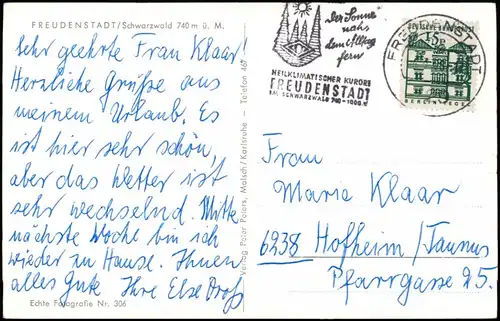 FREUDENSTADT/Schwarzwald 740 m ü. M.
Sehr geehrte Frau Klaar!
Herzliche Grüße aus
meinem Urlaub. Es
ist hier sehr schön,
aber das Wetter ist
sehr wechselnd. Mitte
nächste Woche bin ich
wieder zu Hause. Ihnen
alles Gute Ihre Else
Echte Fotografie Nr. 306
Verlag Peter Peters, Malsch/Karlsruhe - Telefon 467
Der Sonne
nah,
dem Alltag
fern
HEILKLIMATISCHER KURORT
FREUDENSTADT
IM SCHWARZWALD 740-1000 m
FREUDENSTADT
15
BERLIN-TEGEL
Frau
Maria Klaar
6238 Hofheim/Taunus
Pfarrgasse 25.